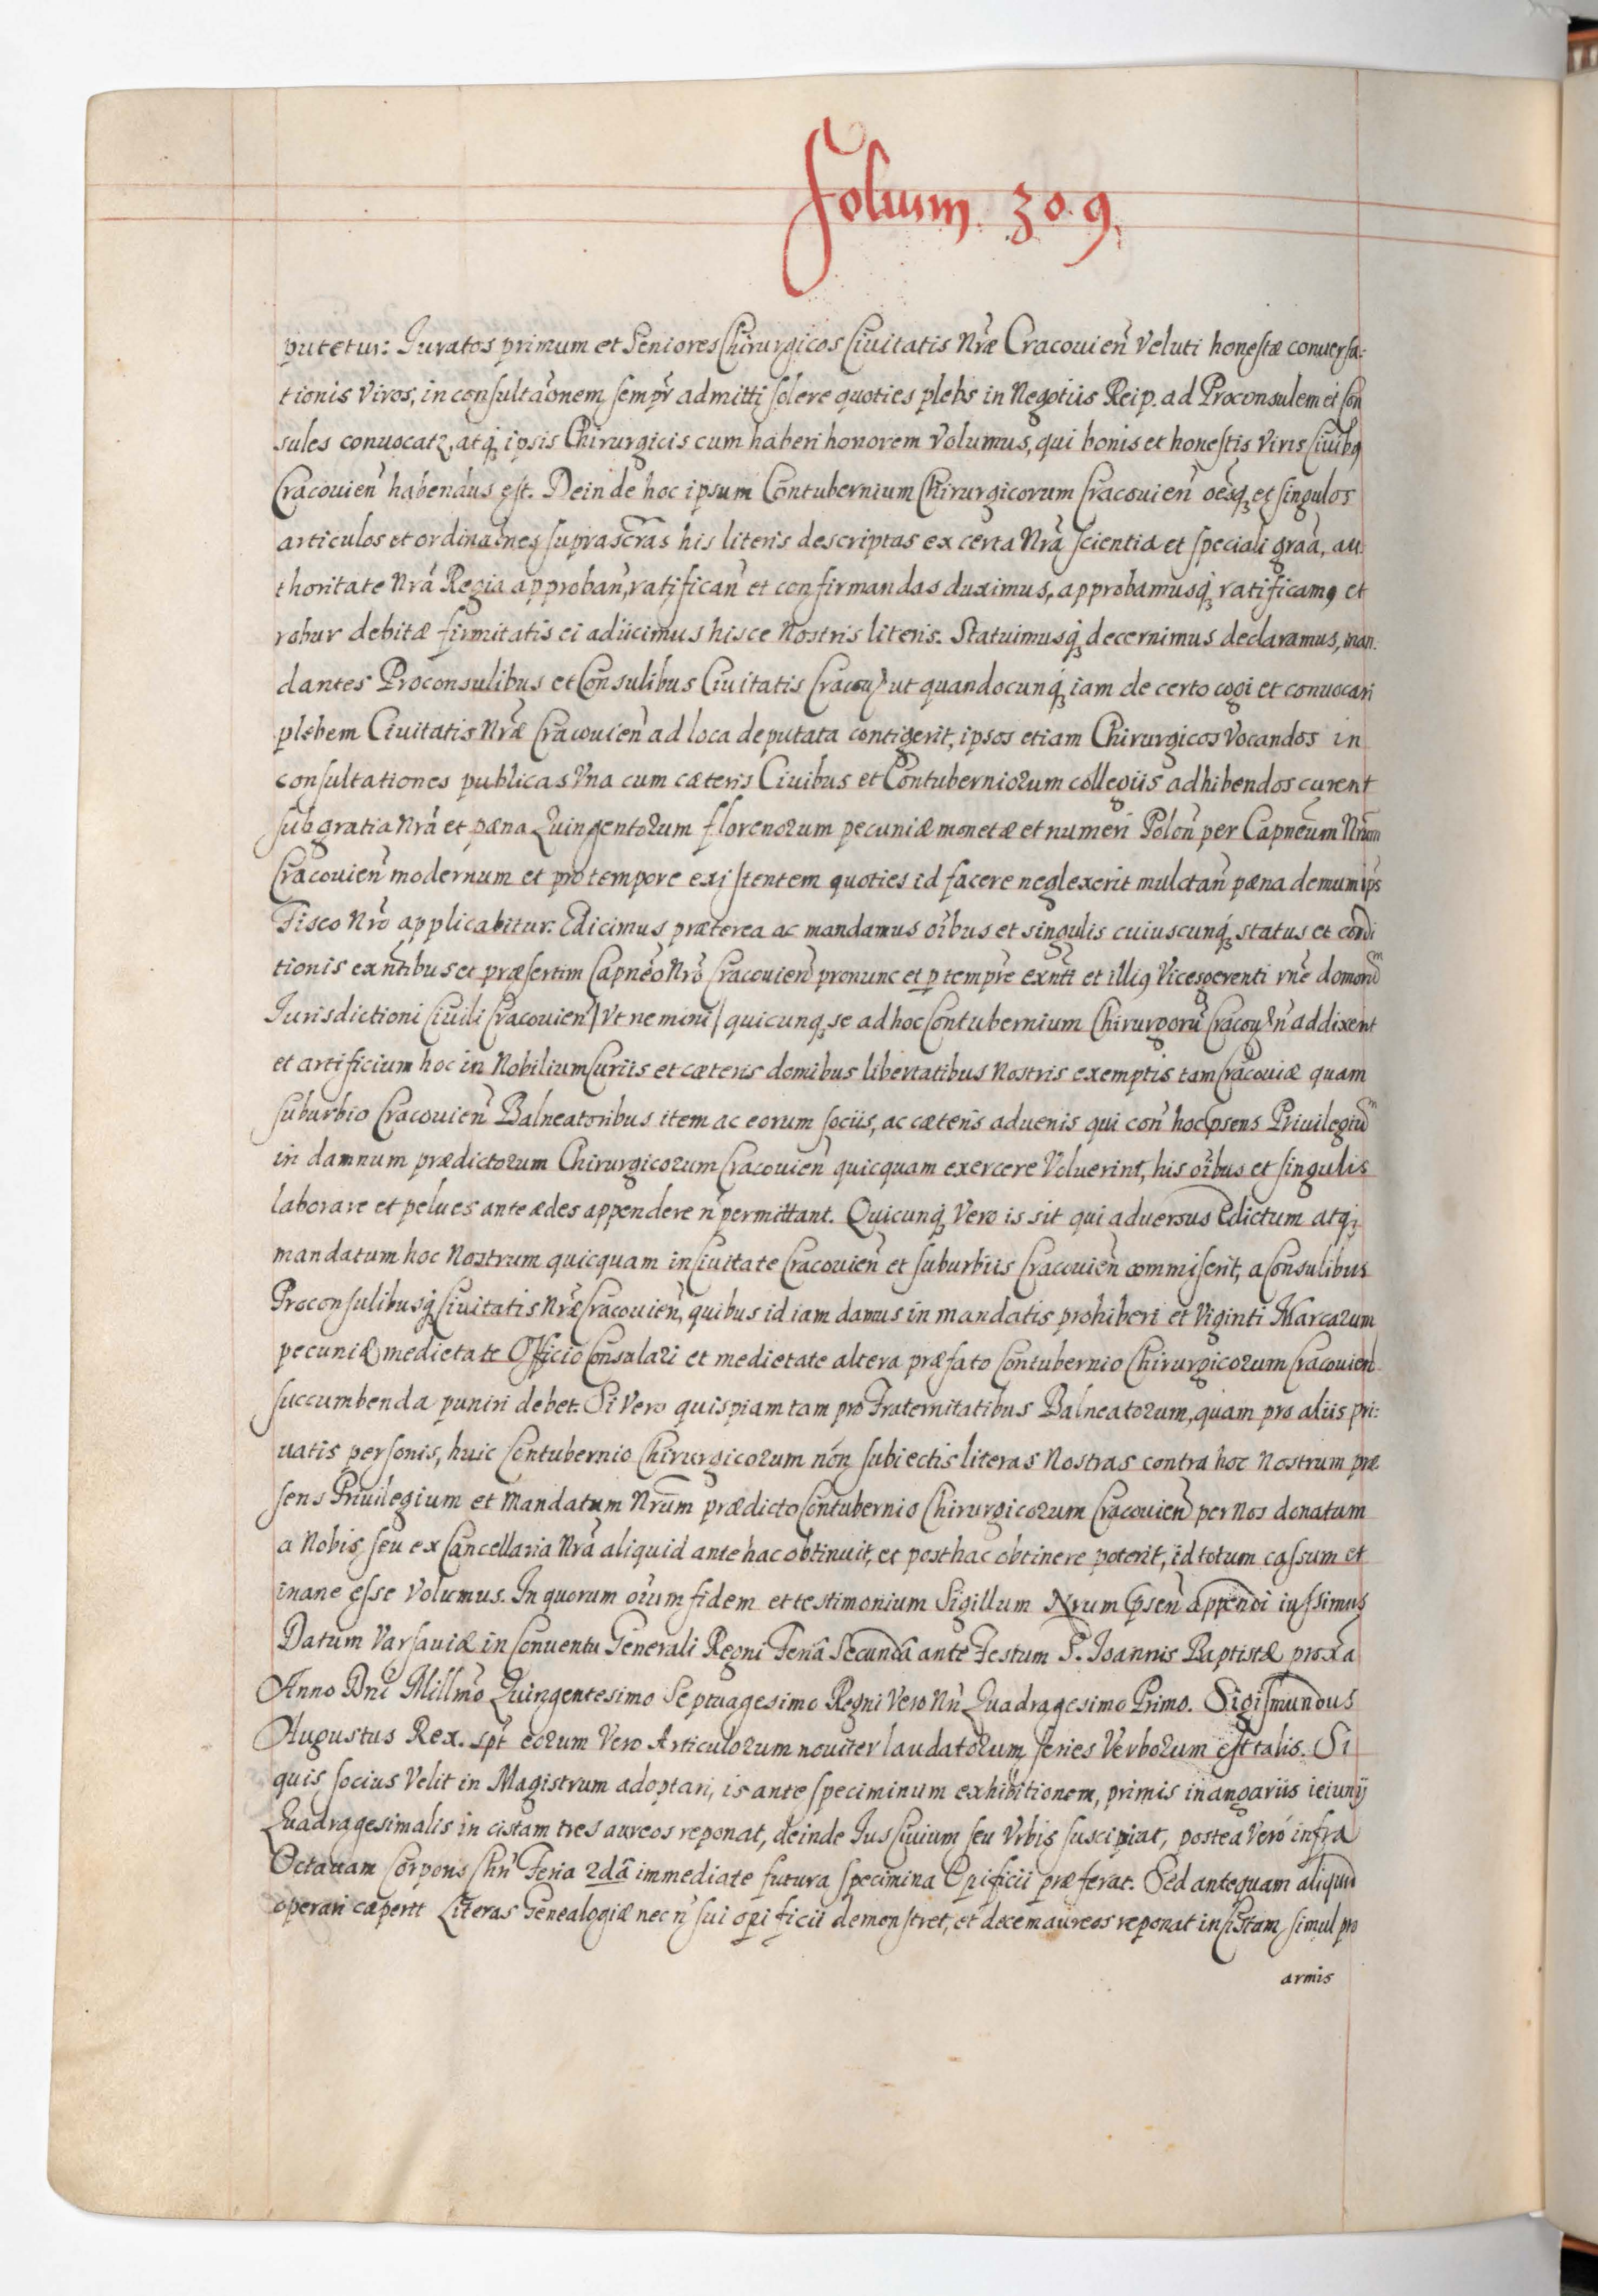 Folium 309.
putetur: Juratos primum et Seniores Chirurgicos Ciuitatis Nræ Cracouien̄ Veluti honestæ conuersa:
tionis Viros, in consultaōnem semp̄r admitti solere quoties plebs in Negotiis Reip. ad Proconsulem et Con
sules conuocatꝛ, atq́ꝫ ipsis Chirurgicis eum haberi honorem Volumus, qui bonis et honestis Viris Ciuibꝰ
Cracouien̄ habendus est. Deinde hoc ipsum Contubernium Chirurgicorum Cracouien̄ oēsqꝫ et singulos
articulos et ordinaōnes suprascr̄as his literis descriptas ex certa Nr̄a scientia et speciali graā, au:
thoritate Nrá Regia approban̄, ratifican̄ et confirmandas duximus, approbamusq́ꝫ ratificamꝰ et
robur debitæ firmitatis ei adiicimus hisce Nostris literis. Statuimusq́ꝫ decernimus declaramus, man.
dantes Proconsulibus et Consulibus Ciuitatis Cracou̅ ut quandocunq́ꝫ iam de certo cogi et conuocari
plebem Ciuitatis Nræ Cracouien̄ ad loca deputata contigerit, ipsos etiam Chirurgicos Vocandos in
consultationes publicas Vna cum cæteris Ciuibus et Contuberniorum collegiis adhibendos curent
sub gratia Nrá et pæna Quingentorum florenorum pecuniæ monetæ et numeri Polon̄ per Capnēum Nrūm
Cracouien̄ modernum et pro tempore existentem quoties id facere neglexerit mulctan̄ pæna demum ip̄s
Fisco Nrō applicabitur. Edicimus præterea ac mandamus oībus et singulis cuiuscunq́ꝫ status et condi
tionis exn̄tibus et præsertim Capnēo Nrō Cracouien̄ pronunc et p tempr̄e exn̄ti et illiꝰ Vicesgerenti
Jurisdictioni Ciuili Cracouien̄ / Vt nemini / quicunqꝫ se ad hoc Contubernium Chirurgorū Cracou̅ n̄ addixerit
et artificium hoc in Nobilium Curiis et cæteris domibus libertatibus Nostris exemptis tam Cracouiæ quam
suburbio Cracouien̄ Balneatoribus item ac eorum sociis, ac cæteris aduenis qui con̄ hoc p̄sens Priuilegiū
in damnum prædictorum Chirurgicorum Cracouien̄ quicquam exercere Voluerint, his oībus et singulis
laborare et pelues ante ædes appendere n̄ permittant. Quicunq́ꝫ Vero is sit qui aduersus Edictum atq́ꝫ
mandatum hoc Nostrum quicquam in Ciuitate Cracouien̄ et suburbiis Cracouien̄ commiserit, a Consulibus
Proconsulibusq́ꝫ Ciuitatis Nræ Cracouien̄, quibus id iam damus in mandatis prohiberi et Viginti Marcarum
pecuniæ medietate Officio Consulari et medietate altera præfato Contubernio Chirurgicorum Cracouien̄
succumbenda puniri debet. Si Vero quispiam tam pro Fraternitatibus Balneatorum, quam pro aliis pri:
uatis personis, huic Contubernio Chirurgicorum nón subiectis literas Nostras contra hoc Nostrum præ
sens Priuilegium et Mandatum Nrūm prædicto Contubernio Chirurgicorum Cracouien̄ per Nos donatum
a Nobis seu ex Cancellaria Nrā aliquid ante hac obtinuit, et posthac obtinere poterit, id totum cassum et
inane esse Volumus. In quorum oīum fidem et testimonium Sigillum Nrum p̄sen̄ appendi iussimus
Datum Varsauiæ in Conuentu Generali Regni Feriâ Secundâ ante Festum S. Joannis Baptistæ proxā
Anno Dnī Millmō Quingentesimo Septuagesimo Regni Vero Nr̄i Quadragesimo Primo. Sigismundus
Augustus Rex. spt̄ eorum Vero Articulorum nouiter laudatorum series Verborum est talis. Si
quis socius Velit in Magistrum adoptari, is ante speciminum exhibitionem, primis in angariis ieiunij
Quadragesimalis in cistam tres aureos reponat, deinde Jus Ciuium seu Vrbis suscipiat, postea Veró infra
Octauam Corporis Chr̄i Feria 2dâ immediate futura specimina Opificii præferat. Sed antequam aliquid
operari cæperit Literas Genealogiæ nec n̄ sui opificii demonstret, et decem aureos reponat in Cistam, simul pro
armis